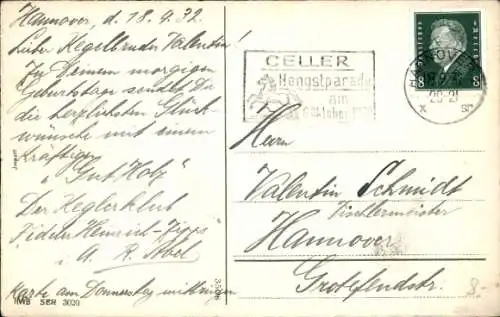 Hannover, d. 18.9.32.
Lieber Kegelbruder Valentin!
Zu Deinem morgigen
Geburtstage sendet Dir
die herzlichsten Glück-
wünsche mit einem
kräftigen
"Gut Holz"
Der Keglerklub
"Fidelio Heinrich-Tipps"
i. A. R. Abel
Karte am Donnerstag mitbringen
IWB SBH 3020
CELLER
Hengstparade
am
Oktober
HANNOVER
20-21
DEUTSCHES REICH
Herrn
Valentin Schmidt
Tischlermeister
Hannover
Grotefendstr. 8.